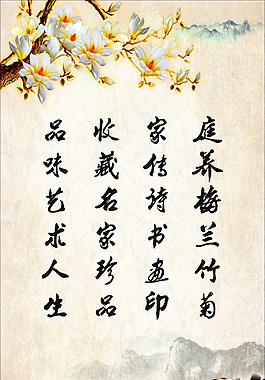 庭养梅兰竹菊
家传诗书画印
收藏名家珍品
品味艺术人生